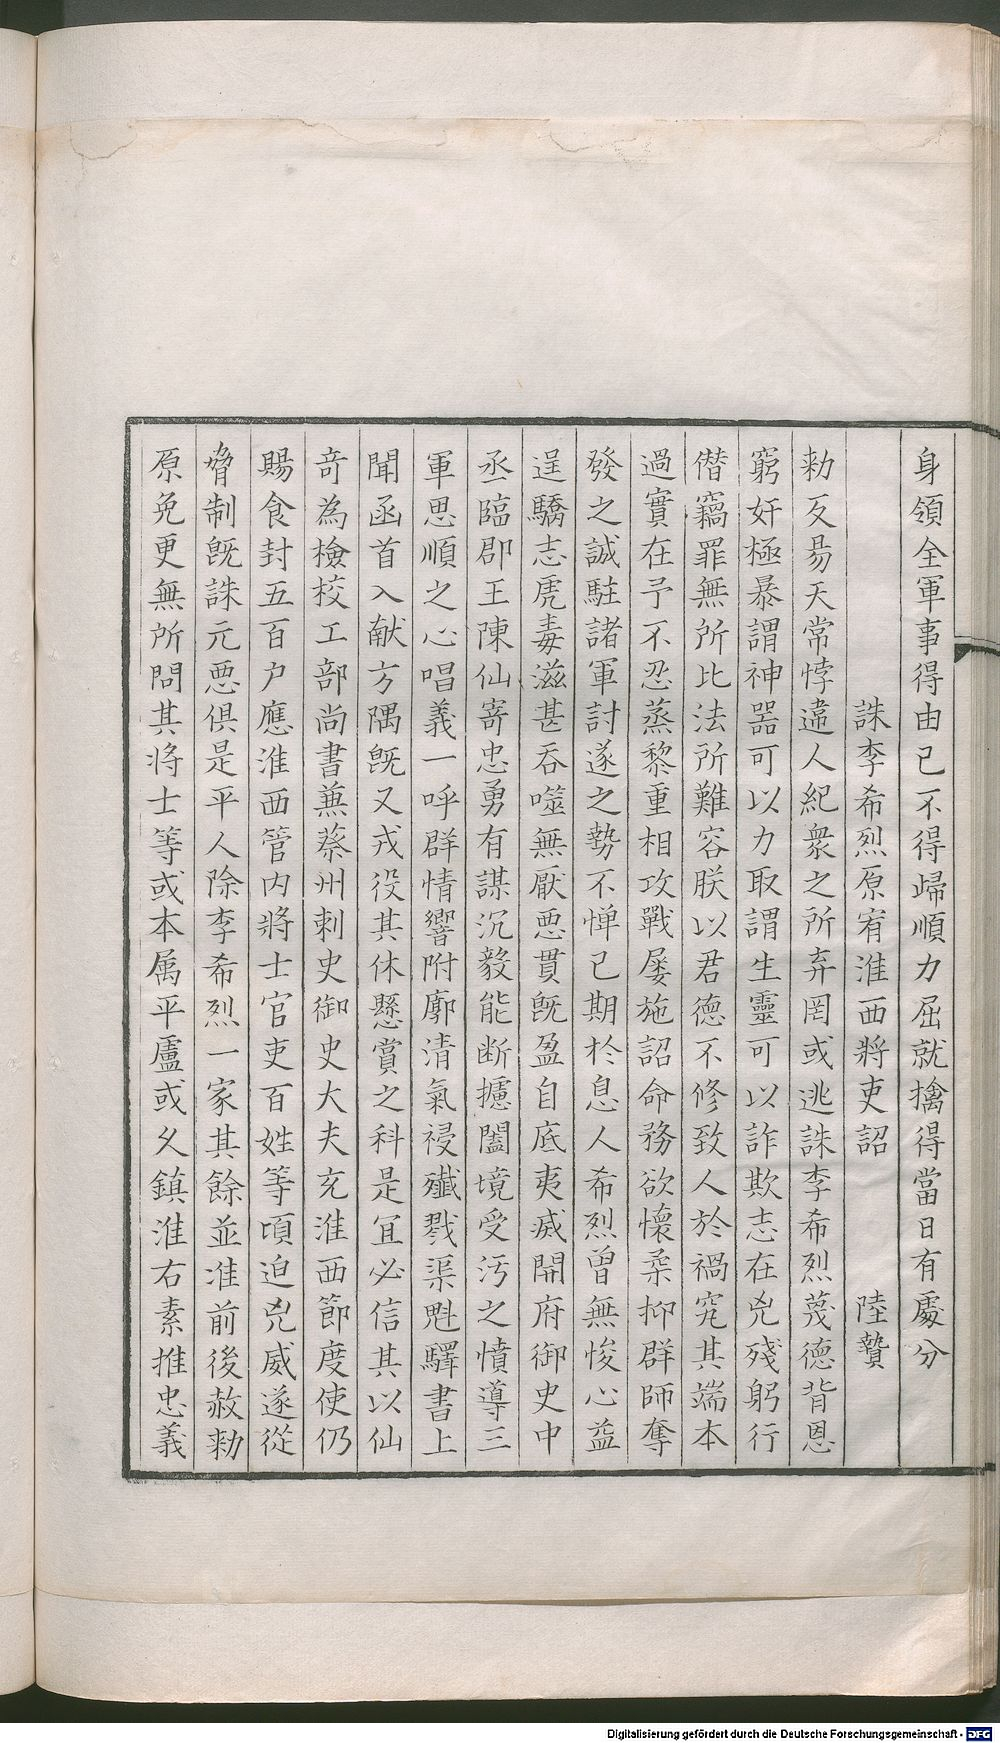 身領全軍事得由已不得歸順力屈就擒得當日有處分
誅李希烈原宥淮西將吏詔 陸贄
勑反易天常悖違人紀衆之所弃罔或逃誅李希烈蔑德背恩
窮奸極暴謂神器可以力取謂生靈可以詐欺志在兇殘躬行
僣竊罪無所比法所難容朕以君德不修致人於禍究其端本
過實在予不忍蒸黎重相攻戰屡施詔命務欲懷柔抑群師奪
發之誠駐諸軍討遂之勢不憚已期於息人希烈曾無悛心益
逞驕志虎毒滋甚吞噬無厭惡貫既盈自底夷威開府御史中
丞臨郡王陳仙寄忠勇有謀沉毅能断攄闔境受污之憤導三
軍思順之心唱義一呼群情響附廓清氣祲殲戮渠魁驛書上
聞函首入献方隅既又戎役其休懸賞之科是宜必信其以仙
竒為檢校工部尚書蕪蔡州刺史御史大夫充淮西節度使仍
賜食封五百户應淮西管内將士官吏百姓等頃迫兇威遂從
脅制既誅元惡俱是平人除李希烈一家其餘並准前後赦勑
原免更無所問其將士等或本属平盧或乆鎮淮右素推忠義
Digitalisierung gefördert durch die Deutsche Forschungsgemeinschaft - DFG